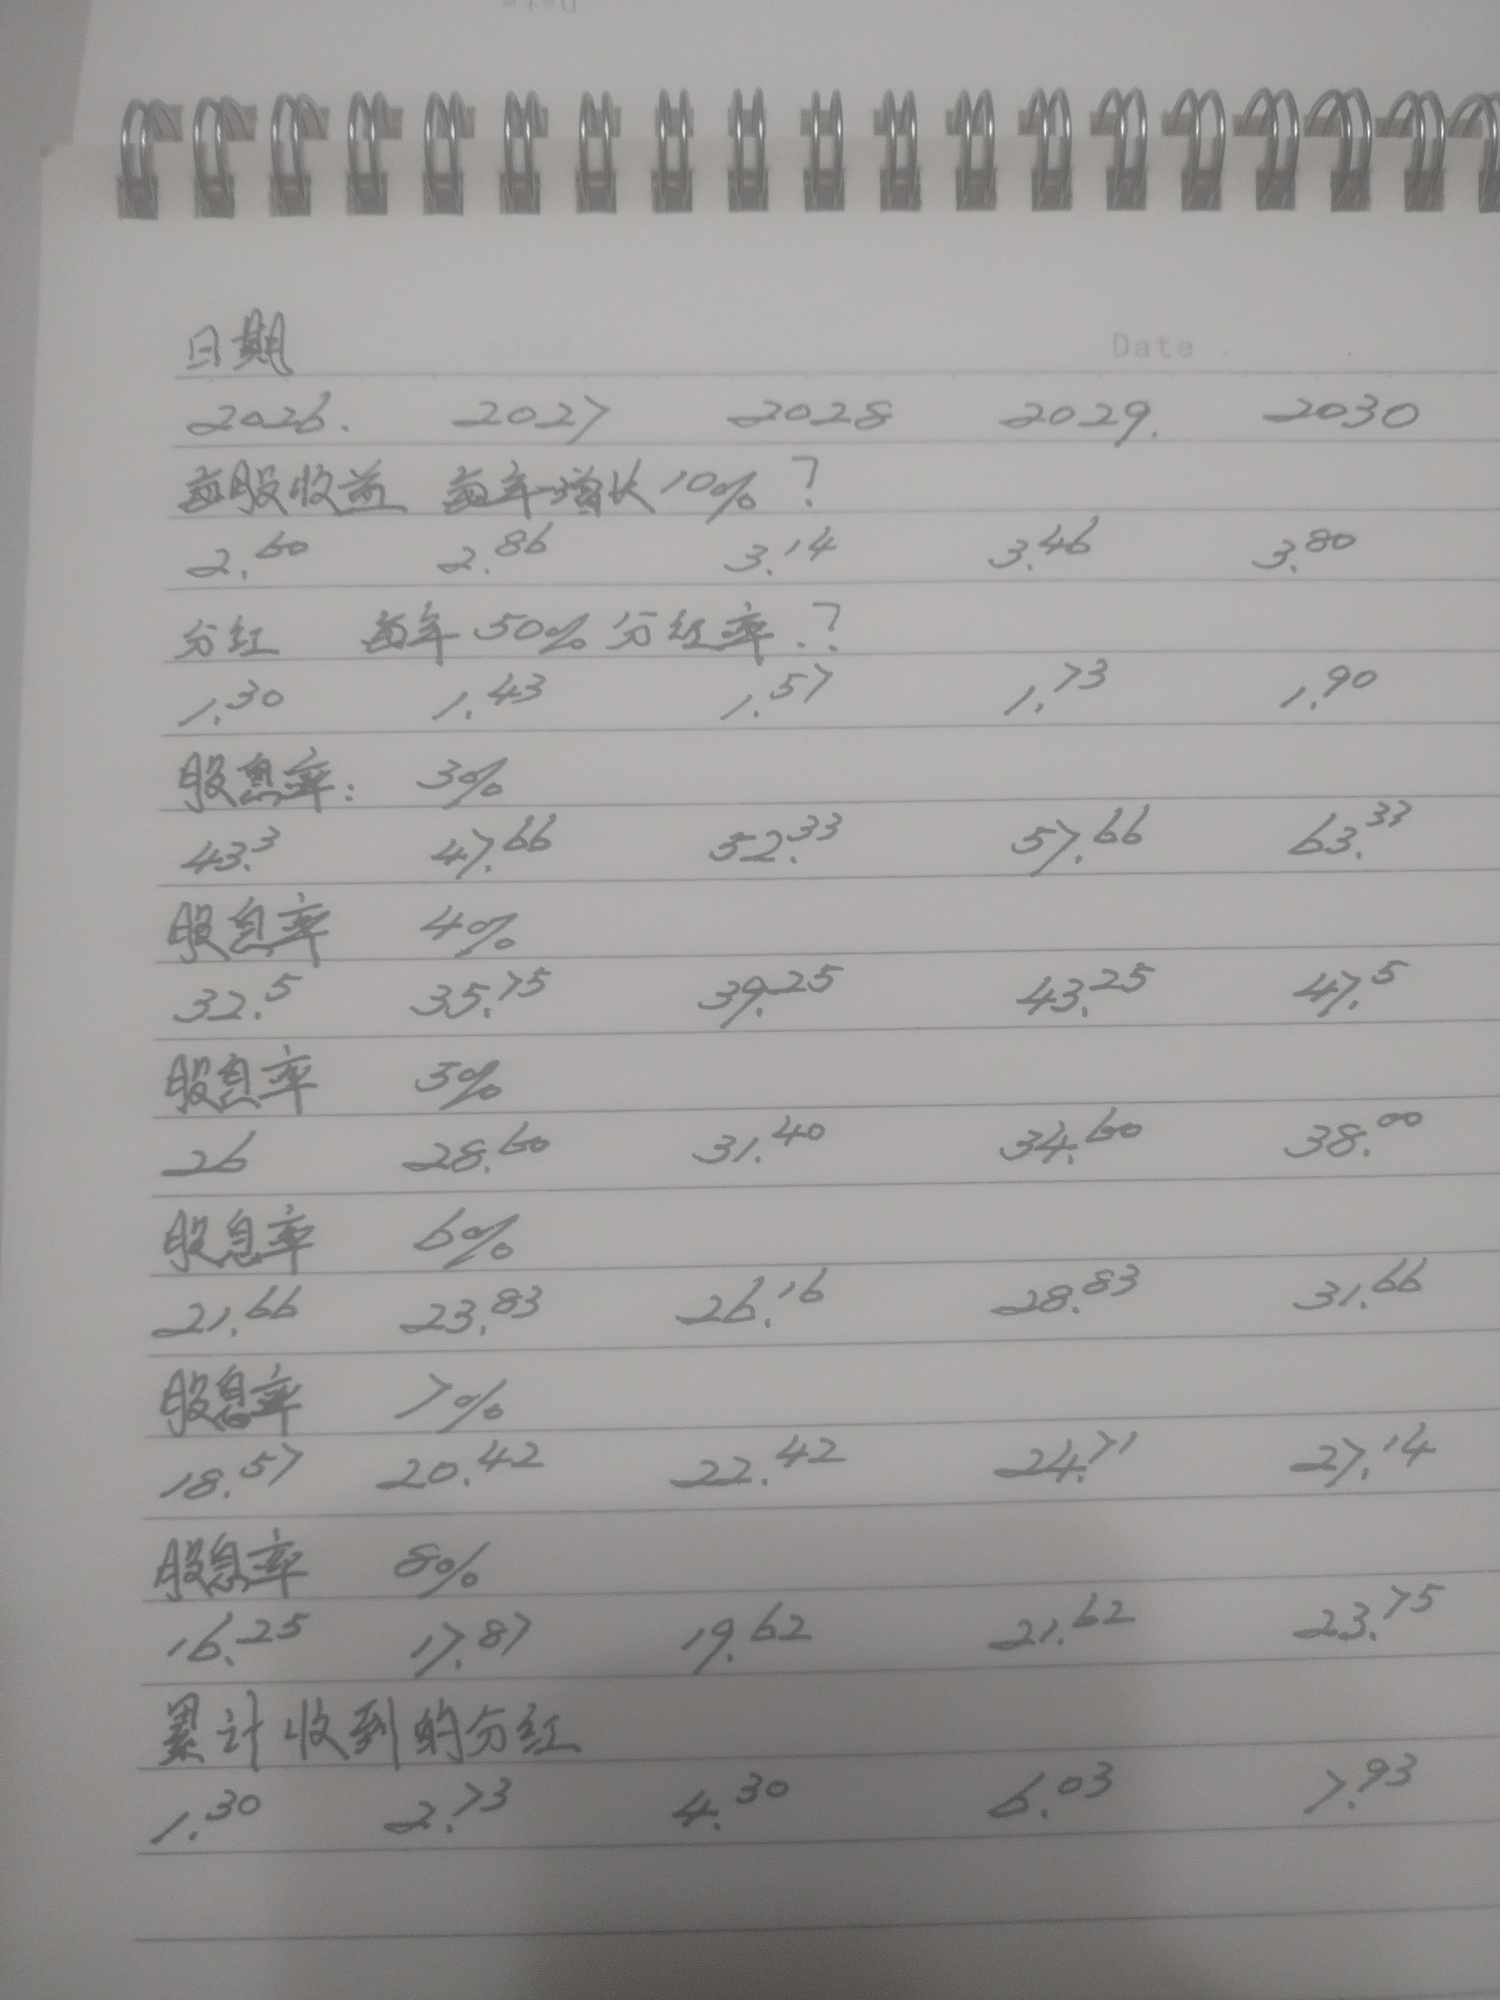 日期
Date
2026. 2027 2028 2029. 2030
每股收益 每年增长10%?
2.60 2.86 3.14 3.46 3.80
分红 每年50%分红率.?
1.30 1.43 1.57 1.73 1.90
股息率: 3%
43.3 47.66 52.33 57.66 63.33
股息率 4%
32.5 35.75 39.25 43.25 47.5
股息率 5%
26 28.60 31.40 34.60 38.00
股息率 6%
21.66 23.83 26.16 28.83 31.66
股息率 7%
18.57 20.42 22.42 24.71 27.14
股息率 8%
16.25 17.87 19.62 21.62 23.75
累计收到的分红
1.30 2.73 4.30 6.03 7.93